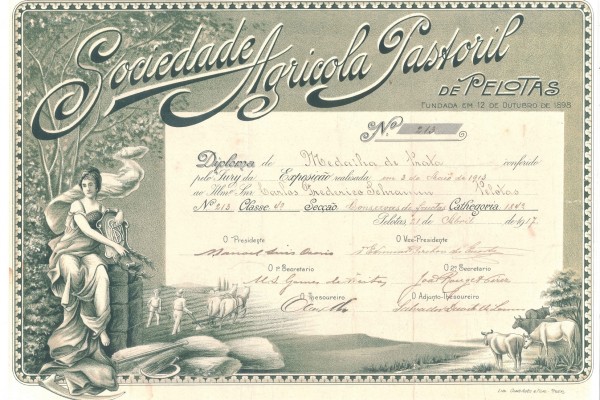 Sociedade Agricola Pastoril
DE PELOTAS
FUNDADA EM 12 DE OUTUBRO DE 1898
No. 213
Diploma de Medalha de Prata conferido
pelo Jury da Exposição realisada em 3 de Maio de 1913
ao Illmo Snr. Carlos Frederico Pelotas
No 213 Classe 4ª Secção Conservas de fructas Cathegoria
Pelotas 21 de Abril de 1917.
O Presidente O Vice-Presidente
Manoel Luis Osorio
O 1º Secretario O 2º Secretario
M. S. Gomes de Freitas João
O Thesoureiro O Adjunto-Thesoureiro